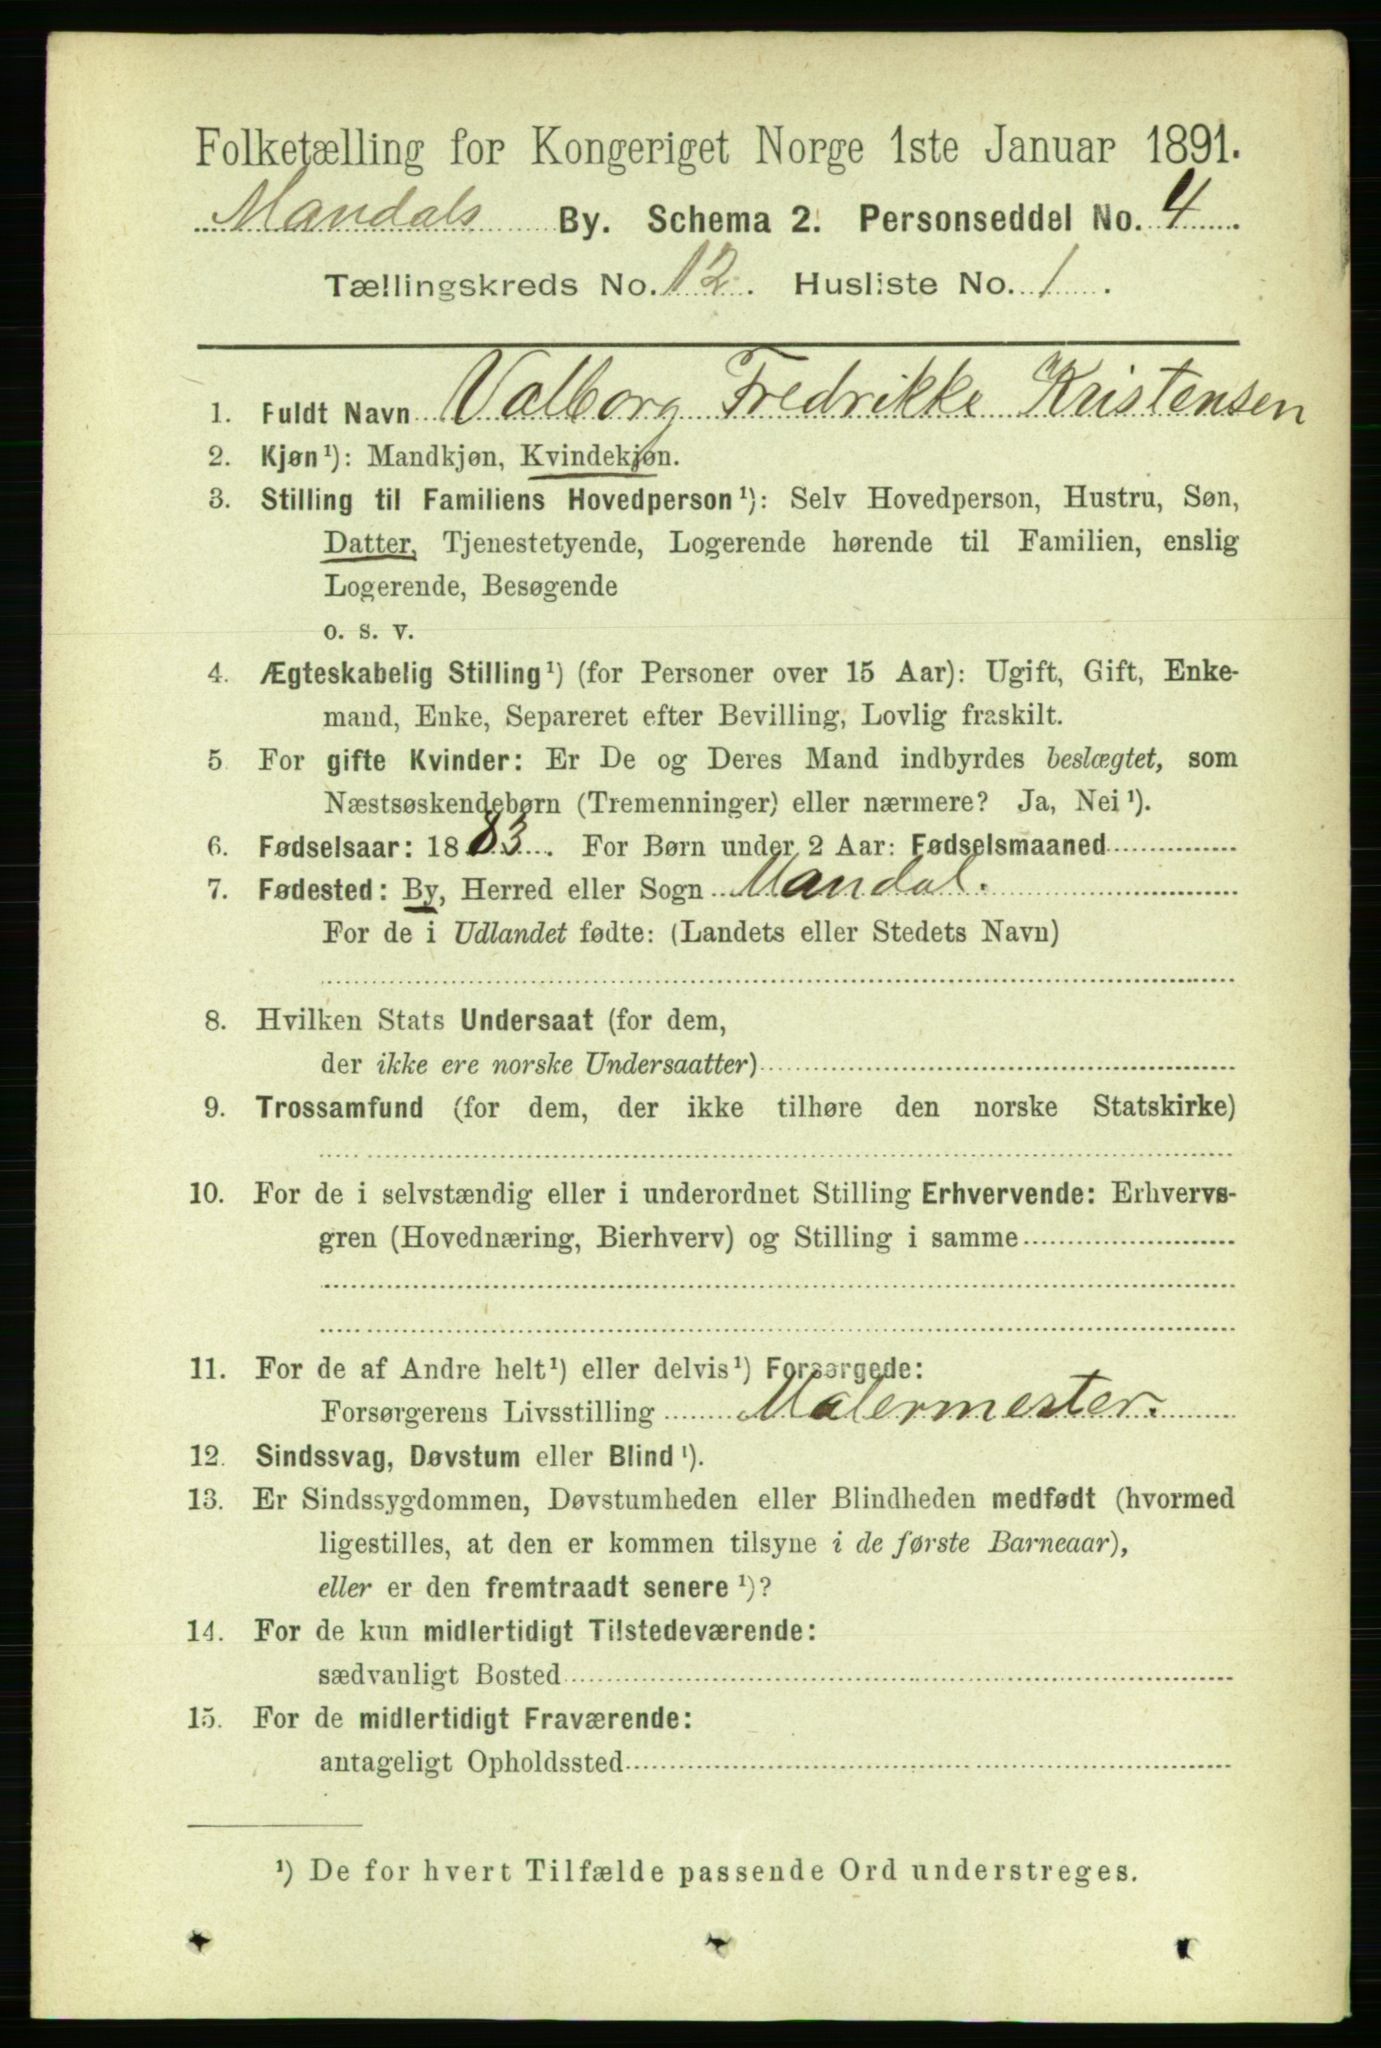 Folketælling for Kongeriget Norge 1ste Januar 1891.
Mandals By. Schema 2. Personseddel No. 4.
Tællingskreds No. 12. Husliste No. 1.
1. Fuldt Navn Valborg Fredrikke Kristensen
2. Kjøn¹): Mandkjøn, Kvindekjøn.
3. Stilling til Familiens Hovedperson¹): Selv Hovedperson, Hustru, Søn,
Datter, Tjenestetyende, Logerende hørende til Familien, enslig
Logerende, Besøgende
o. s. v.
4. Ægteskabelig Stilling¹) (for Personer over 15 Aar): Ugift, Gift, Enke-
mand, Enke, Separeret efter Bevilling, Lovlig fraskilt.
5 For gifte Kvinder: Er De og Deres Mand indbyrdes beslægtet, som
Næstsøskendebørn (Tremenninger) eller nærmere? Ja, Nei¹).
6. Fødselsaar: 1883. For Børn under 2 Aar: Fødselsmaaned
7. Fødested: By, Herred eller Sogn Mandal.
For de i Udlandet fødte: (Landets eller Stedets Navn)
8. Hvilken Stats Undersaat (for dem,
der ikke ere norske Undersaatter)
9. Trossamfund (for dem, der ikke tilhøre den norske Statskirke)
10. For de i selvstændig eller i underordnet Stilling Erhvervende: Erhvervs-
gren (Hovednæring, Bierhverv) og Stilling i samme
11. For de af Andre helt¹) eller delvis¹) Forsørgede:
Forsørgerens Livsstilling Malermester.
12. Sindssvag, Døvstum eller Blind¹).
13. Er Sindssygdommen, Døvstumheden eller Blindheden medfødt (hvormed
ligestilles, at den er kommen tilsyne i de første Barneaar),
eller er den fremtraadt senere¹)?
14. For de kun midlertidigt Tilstedeværende:
sædvanligt Bosted
15. For de midlertidigt Fraværende:
antageligt Opholdssted
¹) De for hvert Tilfælde passende Ord understreges.